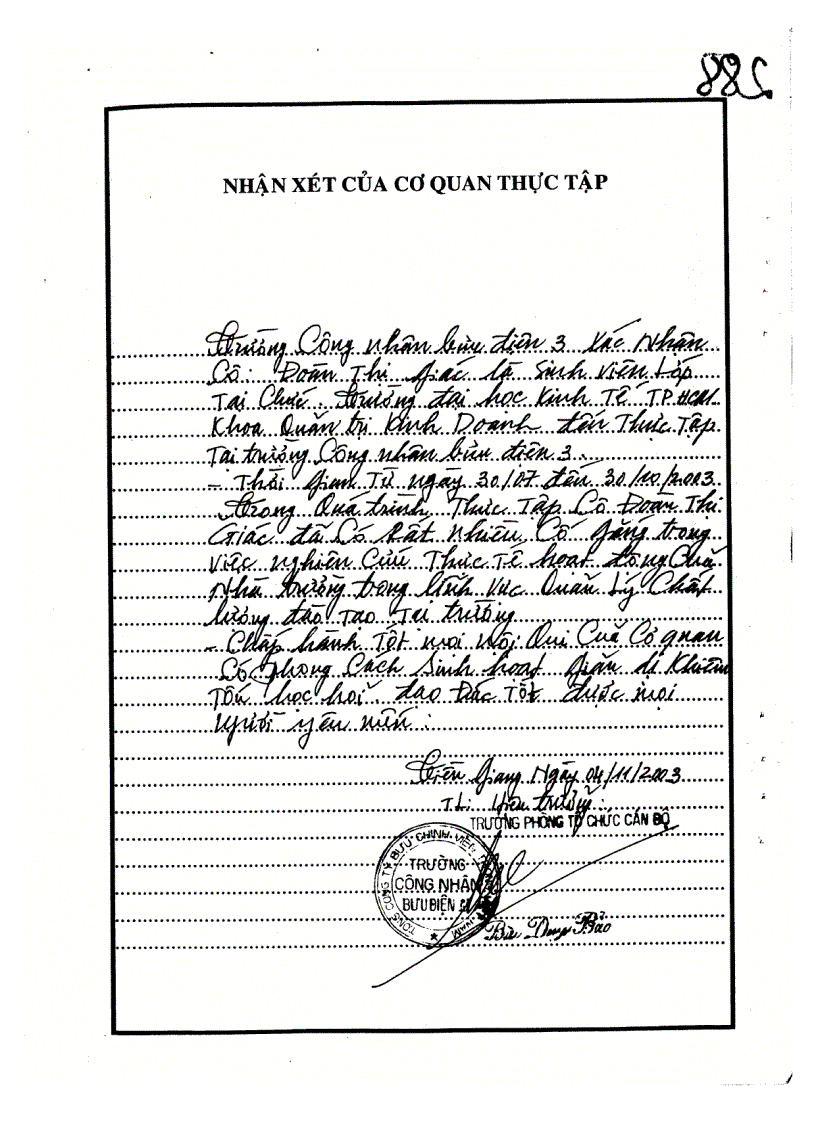 288
NHẬN XÉT CỦA CƠ QUAN THỰC TẬP
Trường Công nhân bưu điện 3 xác nhận
Cô: Đoàn Thị Giác là sinh viên Lớp
Tại Chức. Trường đại học Kinh Tế TP.HCM.
Khoa Quản trị Kinh Doanh đến Thực Tập
Tại trường Công nhân bưu điện 3.
- Thời gian Từ ngày 30/07 đến 30/10/2003
Trong Quá trình Thực Tập Cô Đoàn Thị
Giác đã Có Rất nhiều Cố gắng trong
việc nghiên Cứu Thực Tế hoạt động Của
Nhà trường trong lĩnh vực Quản Lý Chất
lượng đào Tạo Tại trường
- Chấp hành Tốt mọi nội Qui Của Cơ quan
Có phong Cách Sinh hoạt giản dị Khiêm
Tốn học hỏi. đạo Đức Tốt được mọi
người yêu mến.
Tiền Giang Ngày 04/11/2003
TL. Hiệu trưởng
TRƯỞNG PHÒNG TỔ CHỨC CÁN BỘ
TỔNG CÔNG TY BƯU CHÍNH VIỄN NAM
TRƯỜNG
CÔNG NHÂN
BƯU ĐIỆN
Bảo